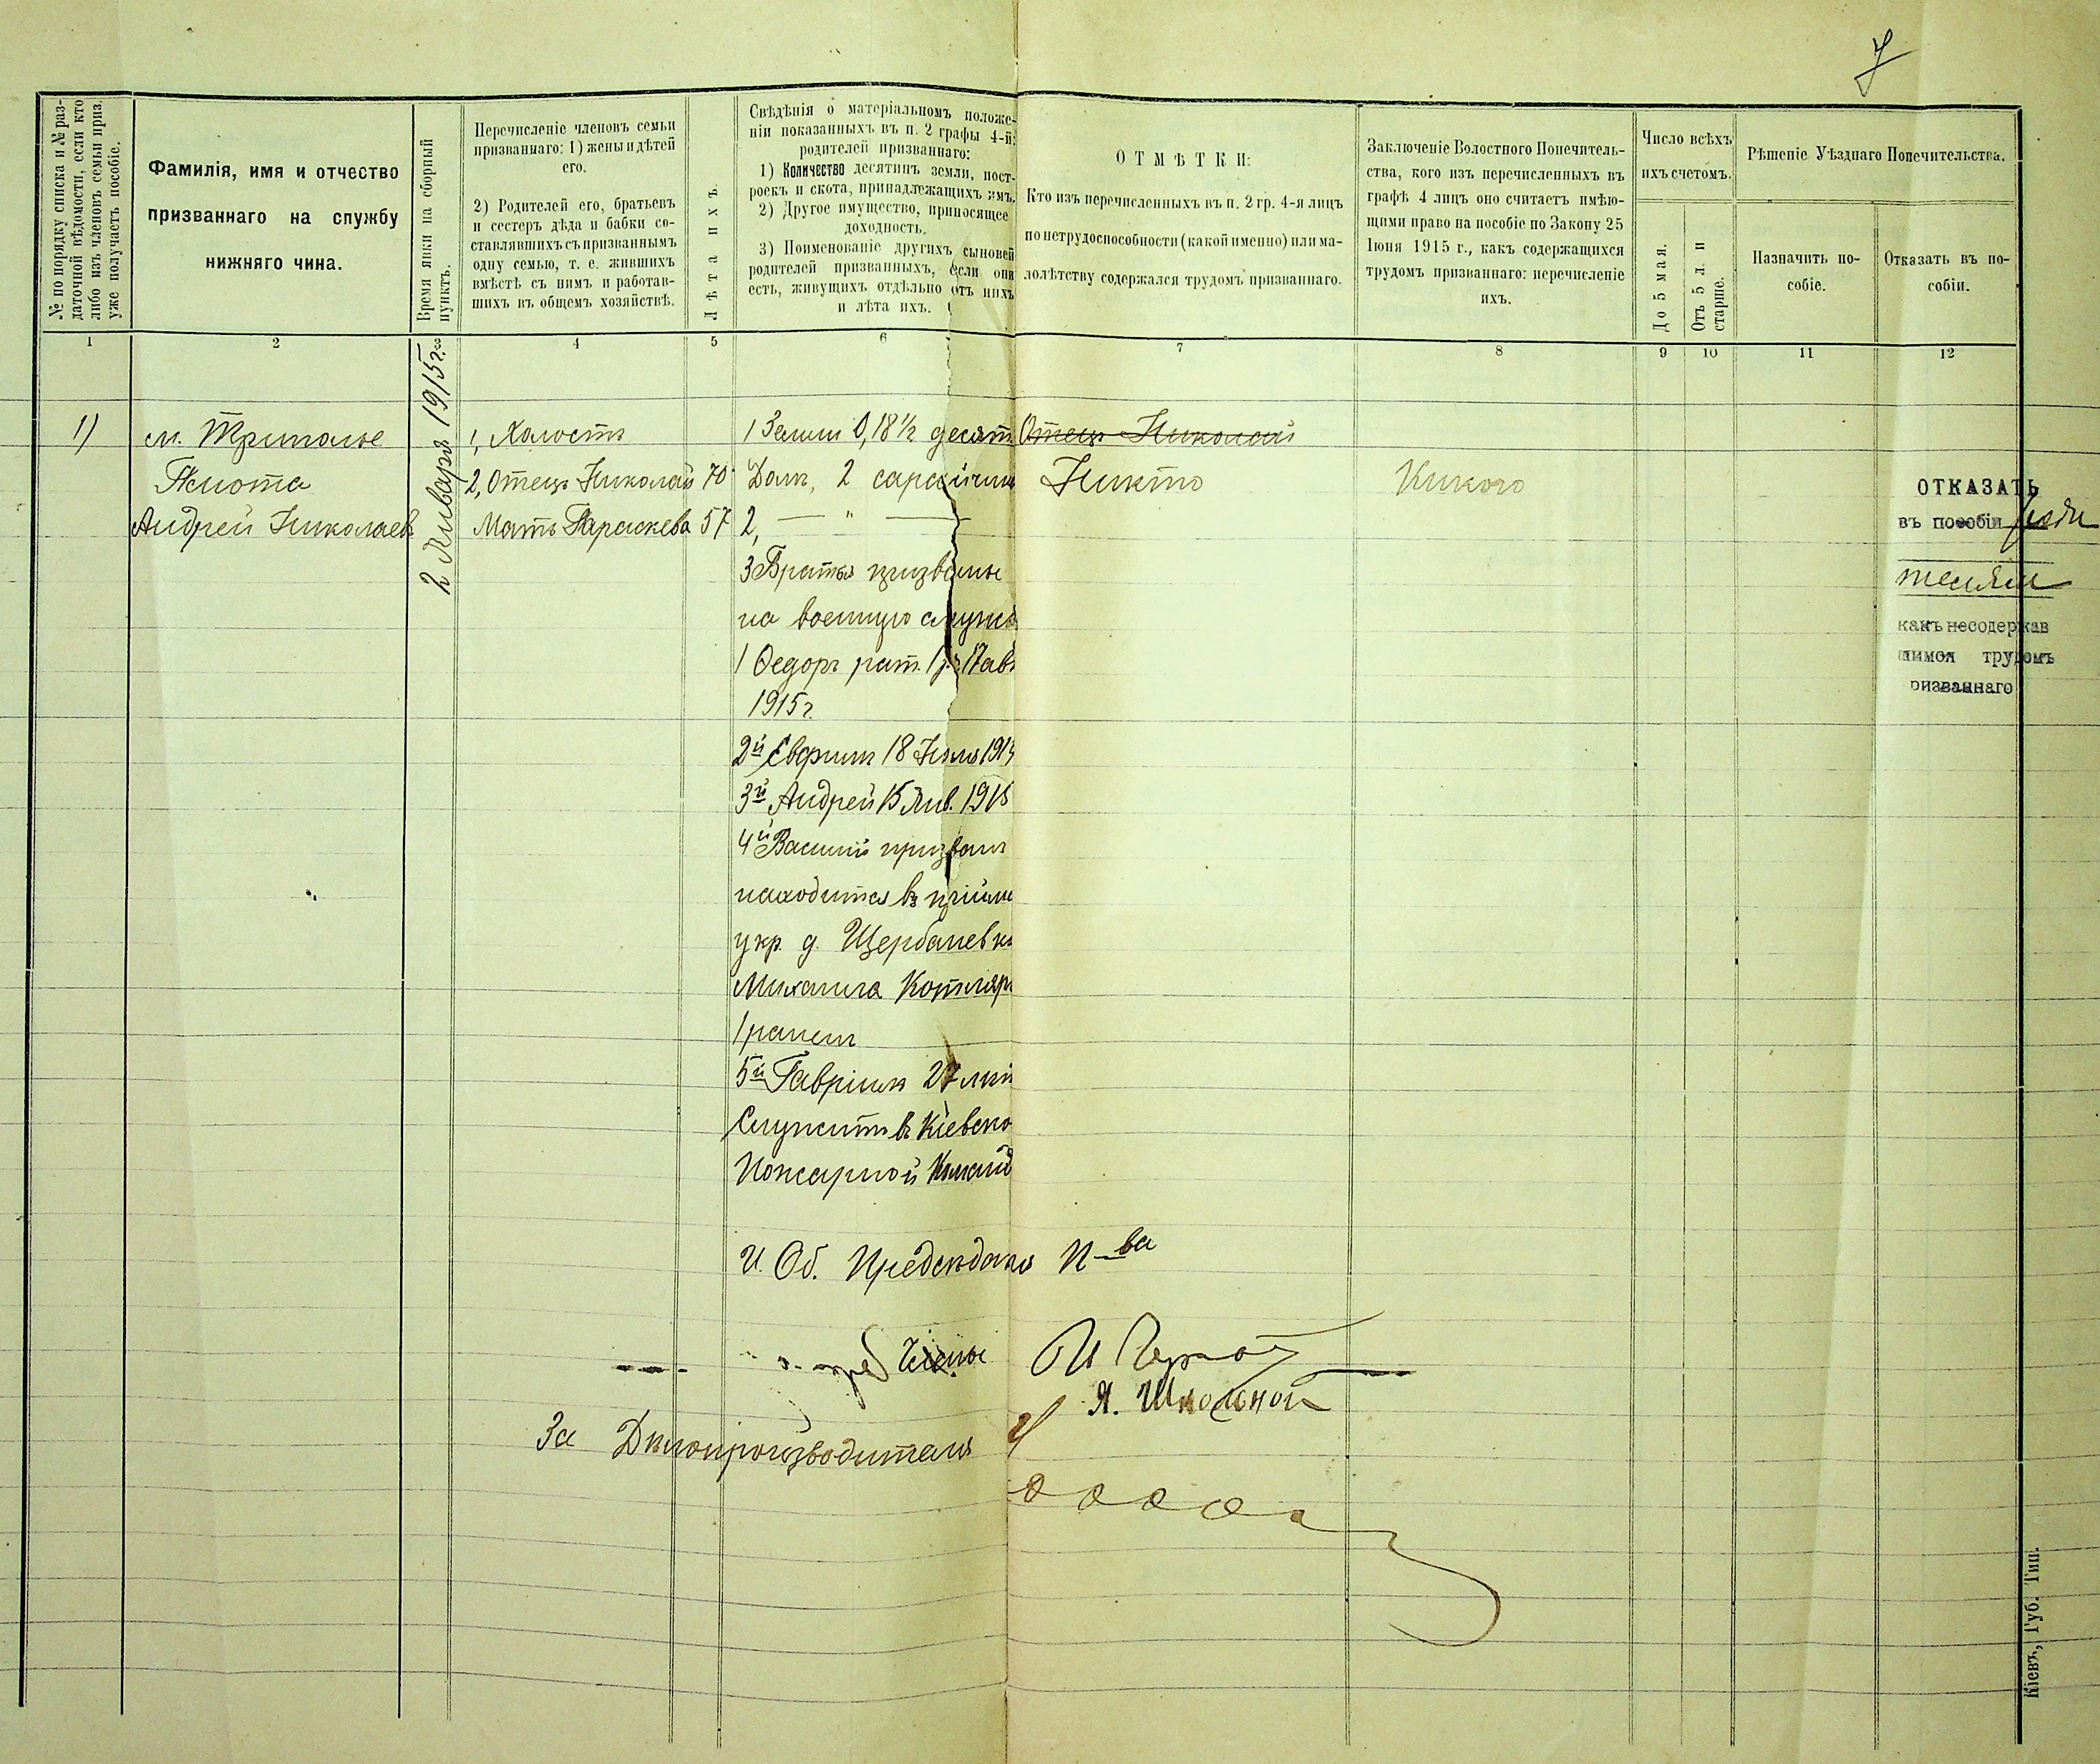 7
№ по порядку списка и № раз-
даточной вѣдомости, если кто
либо изъ членовъ семьи приз.
уже получаетъ пособіе.
Фамилія, имя и отчество
призваннаго на службу
нижняго чина.
Время явки на сборный
пунктъ.
Перечисленіе членовъ семьи
призваннаго: 1) жены и дѣтей
его.
2) Родителей его, братьевъ
и сестеръ дѣда и бабки со-
ставлявшихъ съ призваннымъ
одну семью, т. е. жившихъ
вмѣстѣ съ нимъ и работав-
шихъ въ общемъ хозяйствѣ.
Лѣта ихъ.
Свѣдѣнія о матеріальномъ положе-
ніи показанныхъ въ п. 2 графы 4-й:
родителей призваннаго:
1) Количество десятинъ земли, пост-
роекъ и скота, принадлежащихъ имъ.
2) Другое имущество, приносящее
доходность.
3) Поименованіе другихъ сыновей
родителей призванныхъ, если они
есть, живущихъ отдѣльно отъ нихъ
и лѣта ихъ.
ОТМѢТКИ:
Кто изъ перечисленныхъ въ п. 2 гр. 4-я лицъ
по нетрудоспособности (какой именно) или ма-
лолѣтству содержался трудомъ призваннаго.
Заключеніе Волостного Попечитель-
ства, кого изъ перечисленныхъ въ
графѣ 4 лицъ оно считаетъ имѣю-
щими право на пособіе по Закону 25
Іюня 1915 г., какъ содержащихся
трудомъ призваннаго: перечисленіе
ихъ.
Число всѣхъ
ихъ счетомъ.
До 5 мая.
Отъ 5 л. и
старше.
Рѣшеніе Уѣзднаго Попечительства.
Назначить по-
собіе.
Отказать въ по-
собіи.
1 2 3 4 5 6 7 8 9 10 11 12
1) м. Триполье
Андрей Николаев
2 Январь 1915 г.
1, Холостъ
2, Отецъ Николай 70
Мать Параскева 57
1 Земли 0,18 1/2 десят
Домъ, 2
2, — " —
3 Братья призваны
на военную служб
1 Федоръ рат. 1 р. 17 авг
1915 г.
2й Евфим 18 Іюля 1914
3й Андрей 15 Янв. 1915
4й Василий призван
находится в
укр. д. Щербаневки
Михаила Котляр
1 ранен
5й Гавріилъ 27 лѣт
Служитъ в Кіевско
Пожарной Команд
Отецъ Николай
Никто
Никого
ОТКАЗАТЬ
въ пособіи роди
телям
какъ несодержав
шимся трудомъ
ризваннаго
И. Об. Предсѣдателя П-ва
Члены
Я. Школьной
За Дѣлопроизводителя
Кіевъ, Губ. Тип.